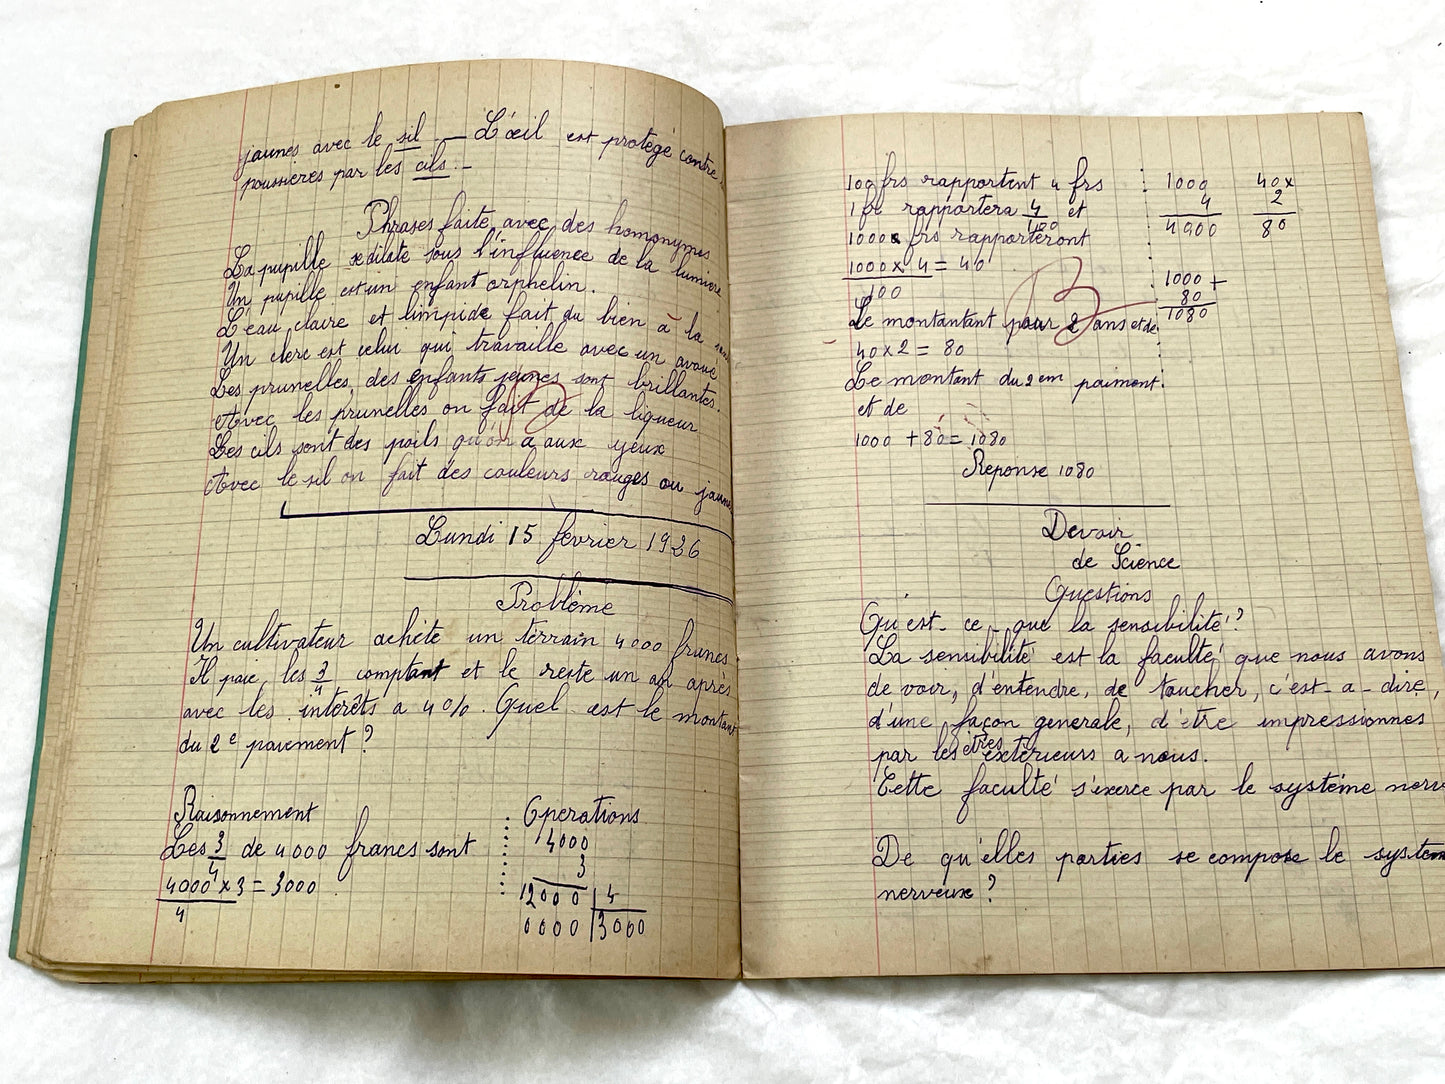 jaunes avec le sil — L'œil est protégé contre
poussières par les cils. –
Phrases faite avec des homonymes
La pupille se dilate sous l'influence de la lumière
Un pupille est un enfant orphelin.
L'eau claire et limpide fait du bien à la
Un clerc est celui qui travaille avec un avoué
Les prunelles des enfants jeunes sont brillantes.
Avec les prunelles on fait de la liqueur
Les cils sont des poils qu'on a aux yeux
Avec le sil on fait des couleurs rouges ou jaunes
Lundi 15 février 1926
Problème
Un cultivateur achète un terrain 4000 francs
Il paie les 3/4 comptant et le reste un an après
avec les intérêts a 4%. Quel est le montant
du 2e paiement ?
Raisonnement
Les 3/4 de 4000 francs sont
4000 x 3 = 3000
4
Opérations
4000
3
12000 | 4
0000 | 3000
100 frs rapportent 4 frs
1 fr rapportera 4/100 et
1000 frs rapporteront
1000 x 4 = 40
100
Le montantant pour 2 ans est de
40 x 2 = 80
Le montant du 2em paiment
et de
1000 + 80 = 1080
Reponse 1080
1000
4
4000
40 x
2
80
1000 +
80
1080
B
B
Devoir
de Science
Questions
Qu'est-ce-que la sensibilité ?
La sensibilité est la faculté que nous avons
de voir, d'entendre, de toucher, c'est-a-dire,
d'une façon generale, d'être impressionnes
par les êtres extérieurs a nous.
Cette faculté s'exerce par le système nerv
De qu'elles parties se compose le system
nerveux ?